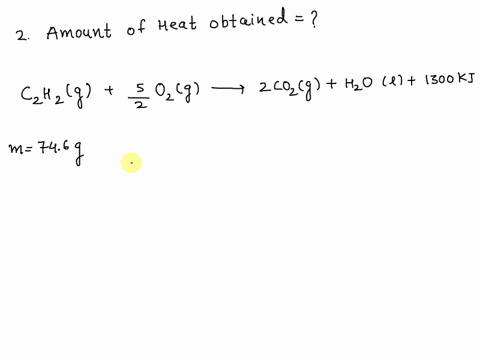 2. Amount of Heat obtained = ?
C₂H₂(g) + 5/2 O₂(g) ⟶ 2CO₂(g) + H₂O (l) + 1300 KJ
m = 74.6 g